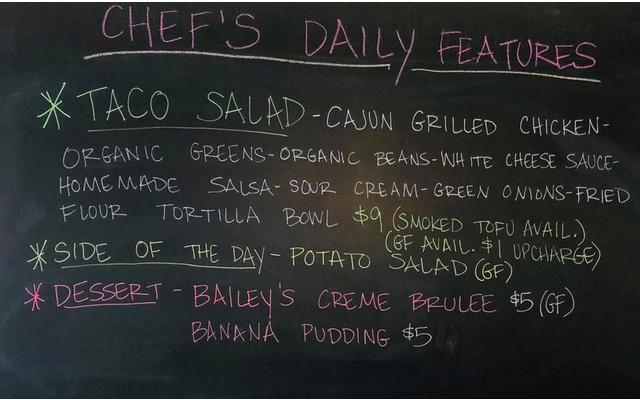 CHEF'S DAILY FEATURES
* TACO SALAD - CAJUN GRILLED CHICKEN-
ORGANIC GREENS - ORGANIC BEANS - WHITE CHEESE SAUCE-
HOMEMADE SALSA - SOUR CREAM - GREEN ONIONS - FRIED
FLOUR TORTILLA BOWL $9 (SMOKED TOFU AVAIL.)
(GF AVAIL. $1 UPCHARGE)
* SIDE OF THE DAY - POTATO SALAD (GF)
* DESSERT - BAILEY'S CREME BRULEE $5 (GF)
BANANA PUDDING $5